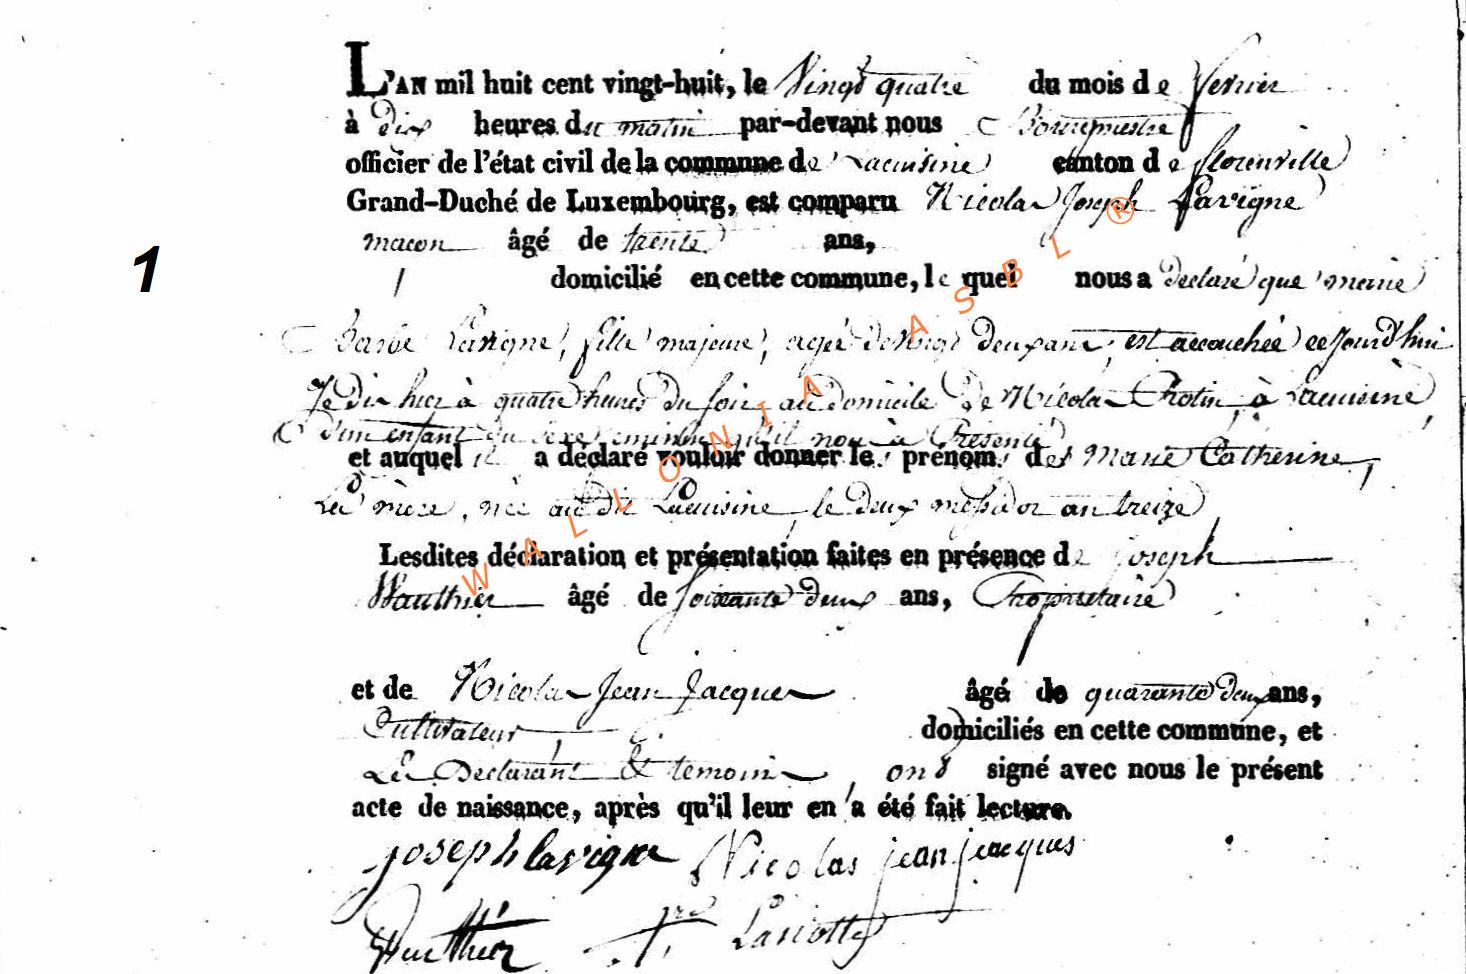 1
L'AN mil huit cent vingt-huit, le Vingt quatre du mois de fevrier
à dix heures du matin par-devant nous Bourgmestre
officier de l'état civil de la commune de Lacuisine canton de florenville
Grand-Duché de Luxembourg, est comparu Nicolas Joseph Lavigne
macon âgé de trente ans,
domicilié en cette commune, le quel nous a declaré que marie
Barbe Lavigne, fille majeure, agée de vingt deux ans, est accouchée cejourd'hui
Je dis hier à quatre heures du soir, au domicile de Nicolas Protin, à Lacuisine
d'un enfant du sexe feminin qu'il nous à Présenté
et auquel il a déclaré vouloir donner les prénoms des Marie Catherine,
La mère, née au dit Lacuisine, le deux messidor an treize,
Lesdites déclaration et présentation faites en présence de Joseph
Wauthier âgé de soixante deux ans, Proprietaire
et de Nicolas Jean Jacques âgé de quarante deux ans,
Cultivateur domiciliés en cette commune, et
Les Declarant & temoins, ont signé avec nous le présent
acte de naissance, après qu'il leur en a été fait lecture.
joseph lavigne Nicolas jean jacques
Wauthier
WALLONIA ASBL ®